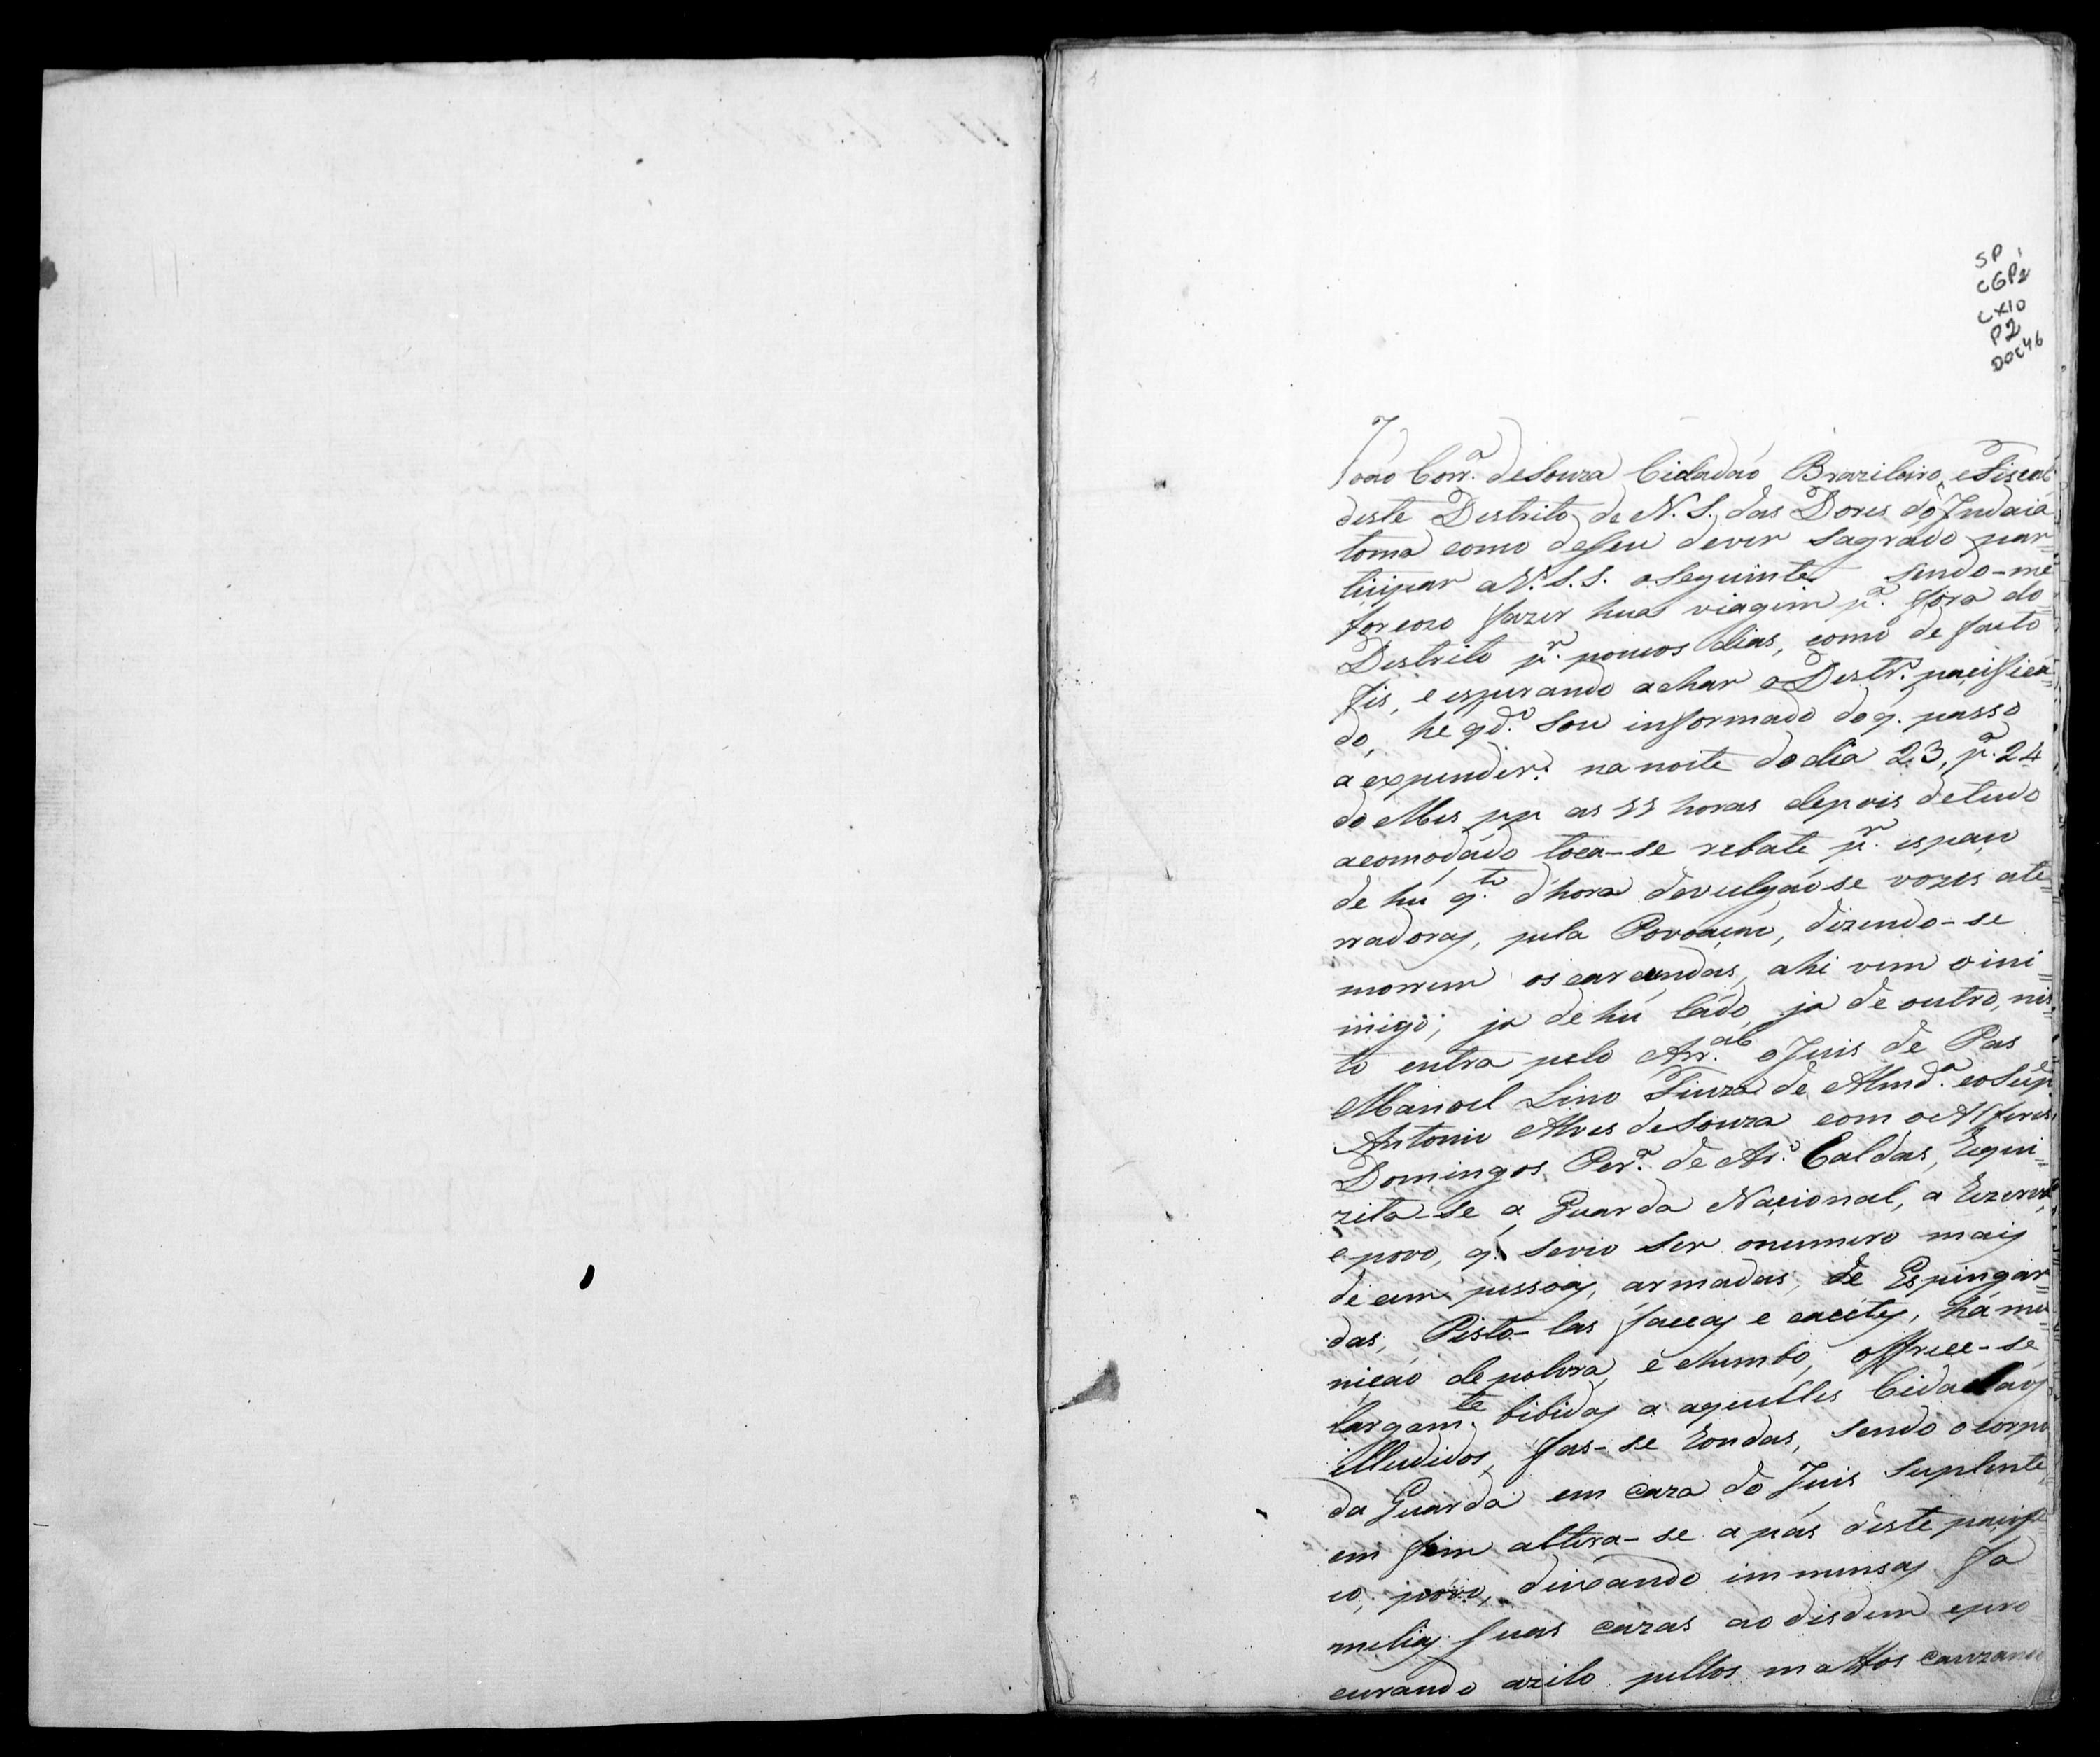 SP
CGP2
CX10
P2
DOC46
João Corr.ª deSouza Cidadaõ Brazileiro, eFiscal
deste Destrito de N. S. das Dores do Indaiá
toma como deseu dever Sagrado par=
ticipar aV. S. S. oSeguinte. Sendo-me
forcozo fazer hua viagem p.ª fora do
Destrito p.r poucos dias, como de facto
fis, e esperando achar o Destr.º pacifica=
do, he qd.º Sou informado doq. passo
a expender: na noite do dia 23, p.ª 24
do Mes pp as 11 horas depois detudo
acomodado toca-se rebate p.r espaco
de hú q.to d'hora devulgaõse vozes ate=
rradoras, pela Povoacaõ, dizendo-se
morrem os carcundas, ahi vem o ini=
migo; ja de hú lado, ja de outro, nis=
to entra pelo Arr.al o Juis de Pas
Manoel Lino Fiuza de Almd.ª eoSup.e
Antonio Alves deSouza com oAlferes
Domingos Per.ª de Ar.º Caldas, Requi=
zita-se a Guarda Nacional, a Rezerva,
e povo, q. Serio Ser onumero mais
de cem pessoas, armadas, de Espingar=
das, Pisto-las facas e cacetes, há mu=
nicaõ depolvra, e chumbo, offrece-se
largam.te bibidas a aquelles Cidadaõs
illudidos, fas-se Rondas, Sendo o corpo
da Guarda em caza do Juis Suplente,
em fim altera-se a pás deste pacifi
co, povo, deixando immensas fa
milias suas cazas ao disdem epro
curando azilo pellos mattos cauzando